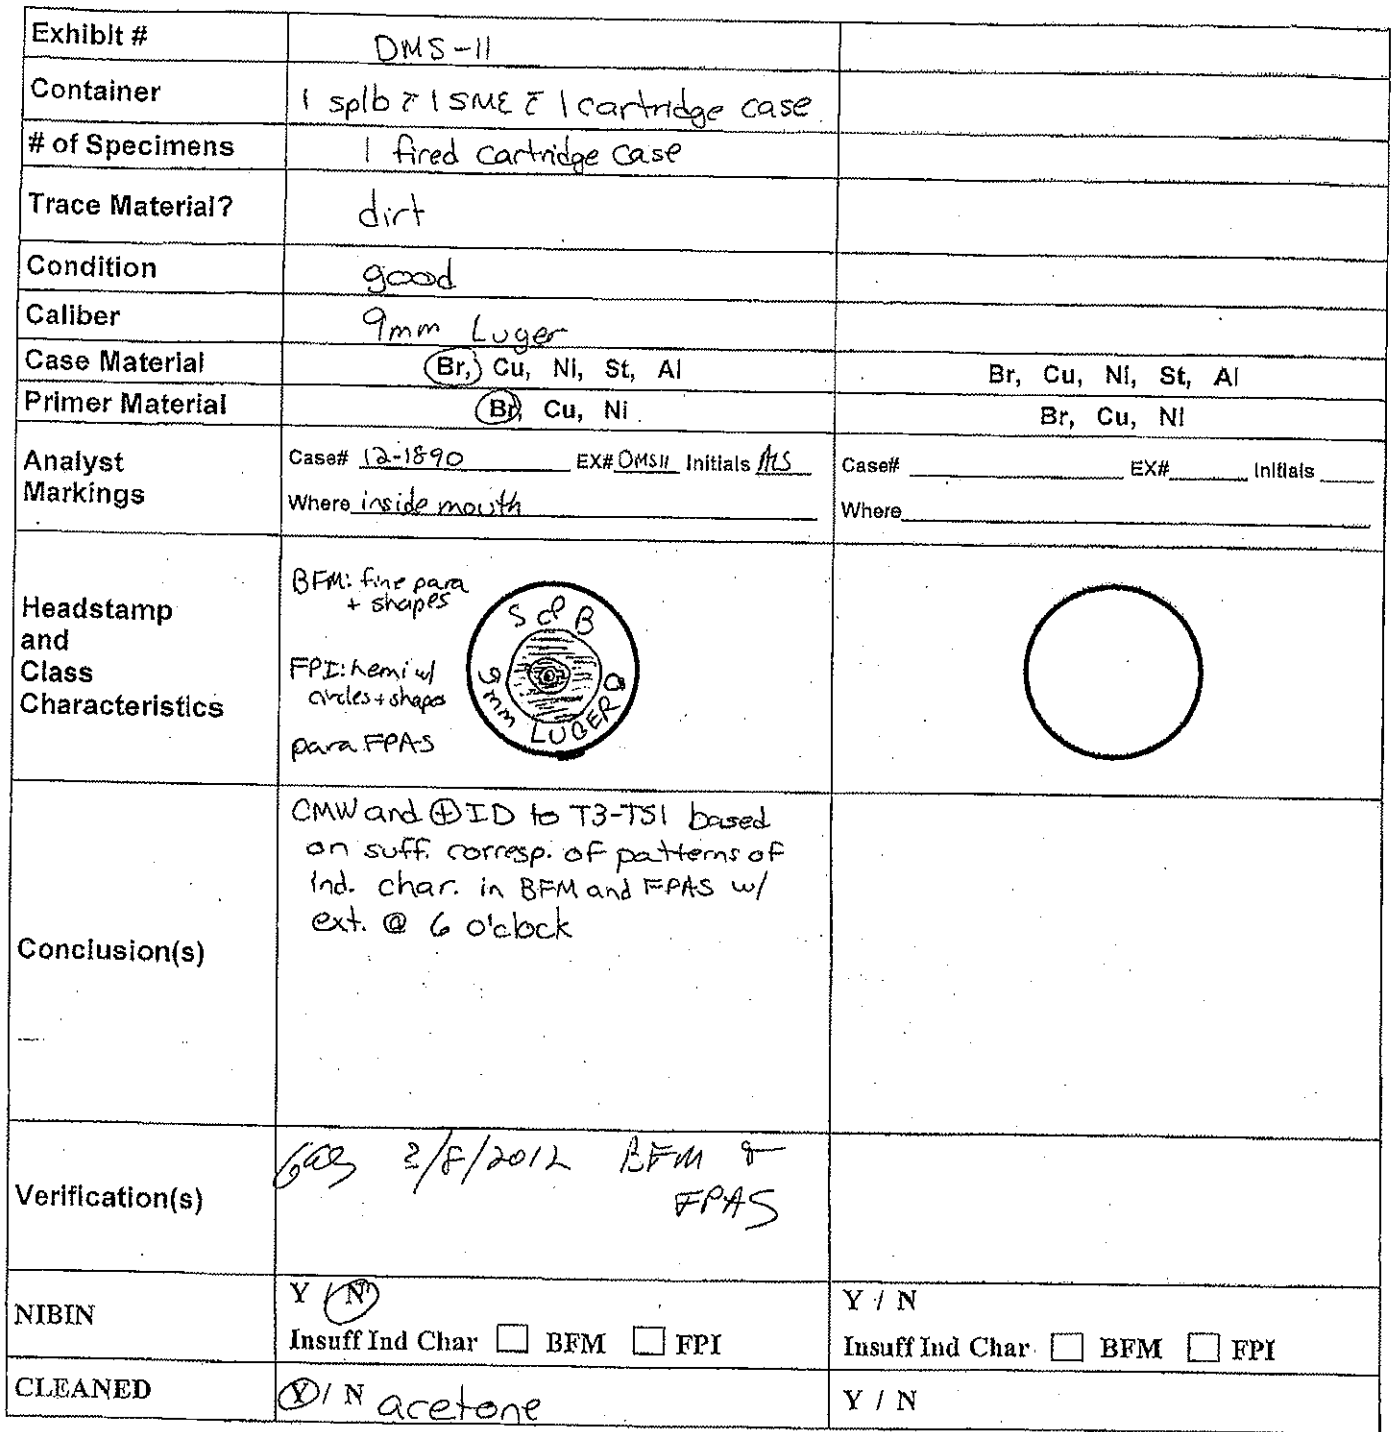 Exhibit # DMS-11
Container 1 splb c̄ 1 SME c̄ 1 cartridge case
# of Specimens 1 fired cartridge case
Trace Material? dirt
Condition good
Caliber 9mm Luger
Case Material Br, Cu, Ni, St, Al Br, Cu, Ni, St, Al
Primer Material Br, Cu, Ni Br, Cu, Ni
Analyst
Markings
Case# 12-1890 EX# DMS11 Initials Case# EX# Initials
Where inside mouth Where
Headstamp
and
Class
Characteristics
BFM: fine para
+ shapes
FPI: hemi w/
circles + shapes
para FPAS
S & B
9mm LUGER
Conclusion(s)
CMW and ⊕ ID to T3-TS1 based
on suff. corresp. of patterns of
ind. char. in BFM and FPAS w/
ext. @ 6 o'clock
Verification(s)
/8/2012 BFM &
FPAS
NIBIN
Y / N Y / N
Insuff Ind Char ☐ BFM ☐ FPI Insuff Ind Char ☐ BFM ☐ FPI
CLEANED Y / N acetone Y / N